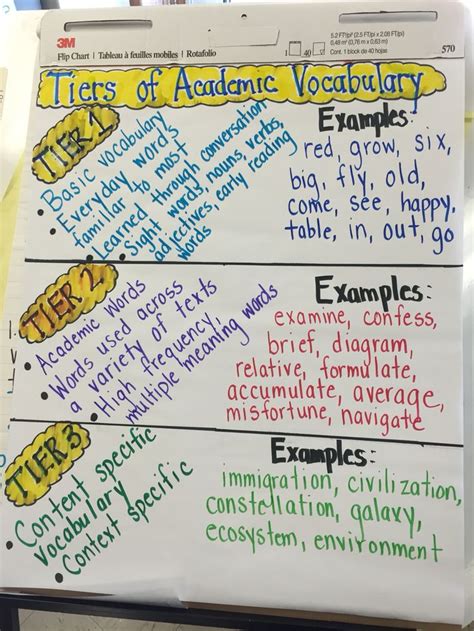 3M
Flip Chart | Tableau à feuilles mobiles | Rotafolio
40
5.2 FT²/pi² (2.5 FT/pi x 2.08 FT/pi)
0,48 m² (0,76 m x 0,63 m)
Cont. 1 block de 40 hojas
570
Tiers of Academic Vocabulary
TIER 1
• Basic vocabulary
• Everyday words
familiar to most
• Learned through conversation
• Sight words, nouns, verbs,
adjectives, early reading
words
Examples:
red, grow, six,
big, fly, old,
come, see, happy,
table, in, out, go
TIER 2
• Academic Words
• Words used across
a variety of texts
• High frequency,
multiple meaning words
Examples:
examine, confess,
brief, diagram,
relative, formulate,
accumulate, average,
misfortune, navigate
TIER 3
• Content specific
vocabulary
• Context specific
Examples:
immigration, civilization,
constellation, galaxy,
ecosystem, environment